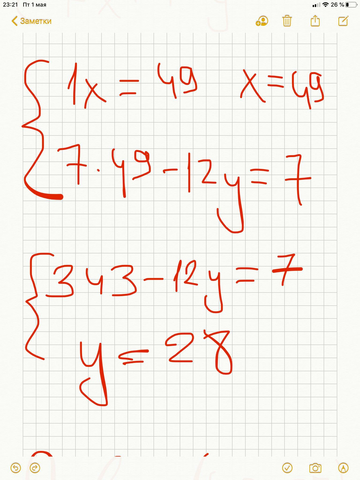 23:21 Пт 1 мая
26 %
Заметки
1x = 49 x = 49
7·49 - 12y = 7
343 - 12y = 7
y = 28